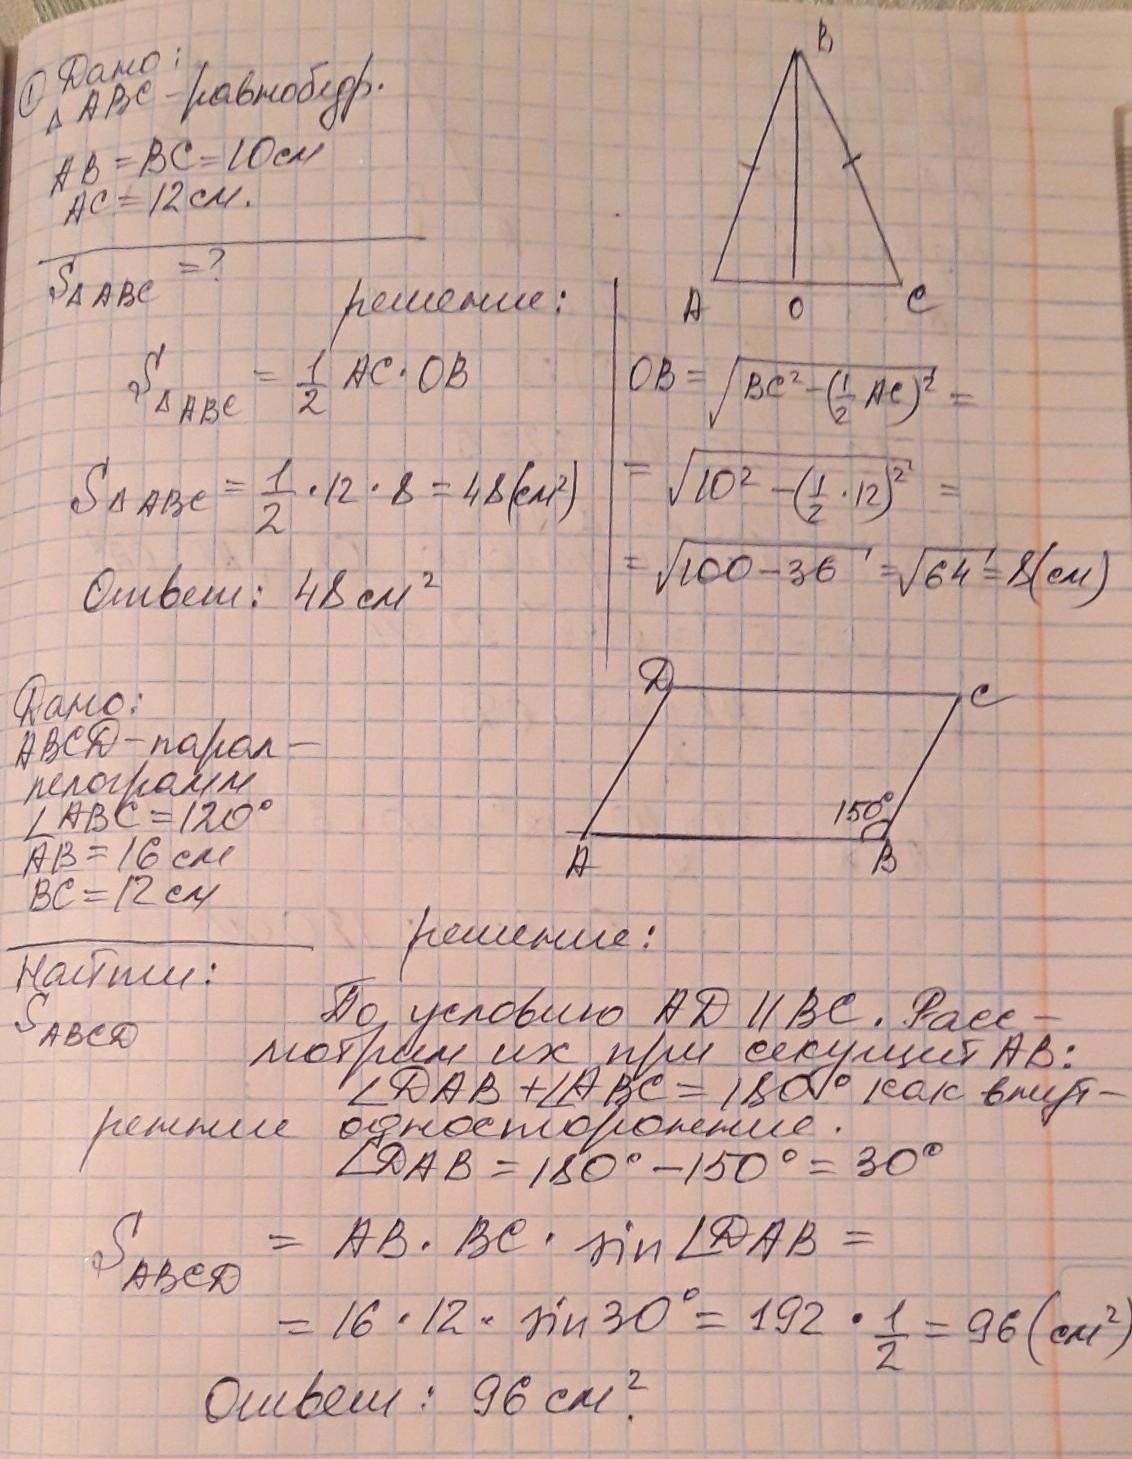 ① Дано:
Δ ABC – равнобедр.
AB = BC = 10 см
AC = 12 см.
S Δ ABC = ?
B
A O C
решение:
S Δ ABC = 1/2 AC · OB
S Δ ABC = 1/2 · 12 · 8 = 48 (см²)
Ответ: 48 см²
OB = √(BC² – (1/2 AC)²) =
= √(10² – (1/2 · 12)²) =
= √(100 – 36) = √64 = 8 (см)
Дано:
ABCD – парал–
лелограмм
∠ABC = 120°
AB = 16 см
BC = 12 см
Найти:
S ABCD
D C
150°
A B
решение:
По условию AD || BC. Расс–
мотрим их при секущей AB:
∠DAB + ∠ABC = 180° как внут–
ренние односторонние.
∠DAB = 180° – 150° = 30°
S ABCD = AB · BC · sin ∠DAB =
= 16 · 12 · sin 30° = 192 · 1/2 = 96 (см²)
Ответ: 96 см².